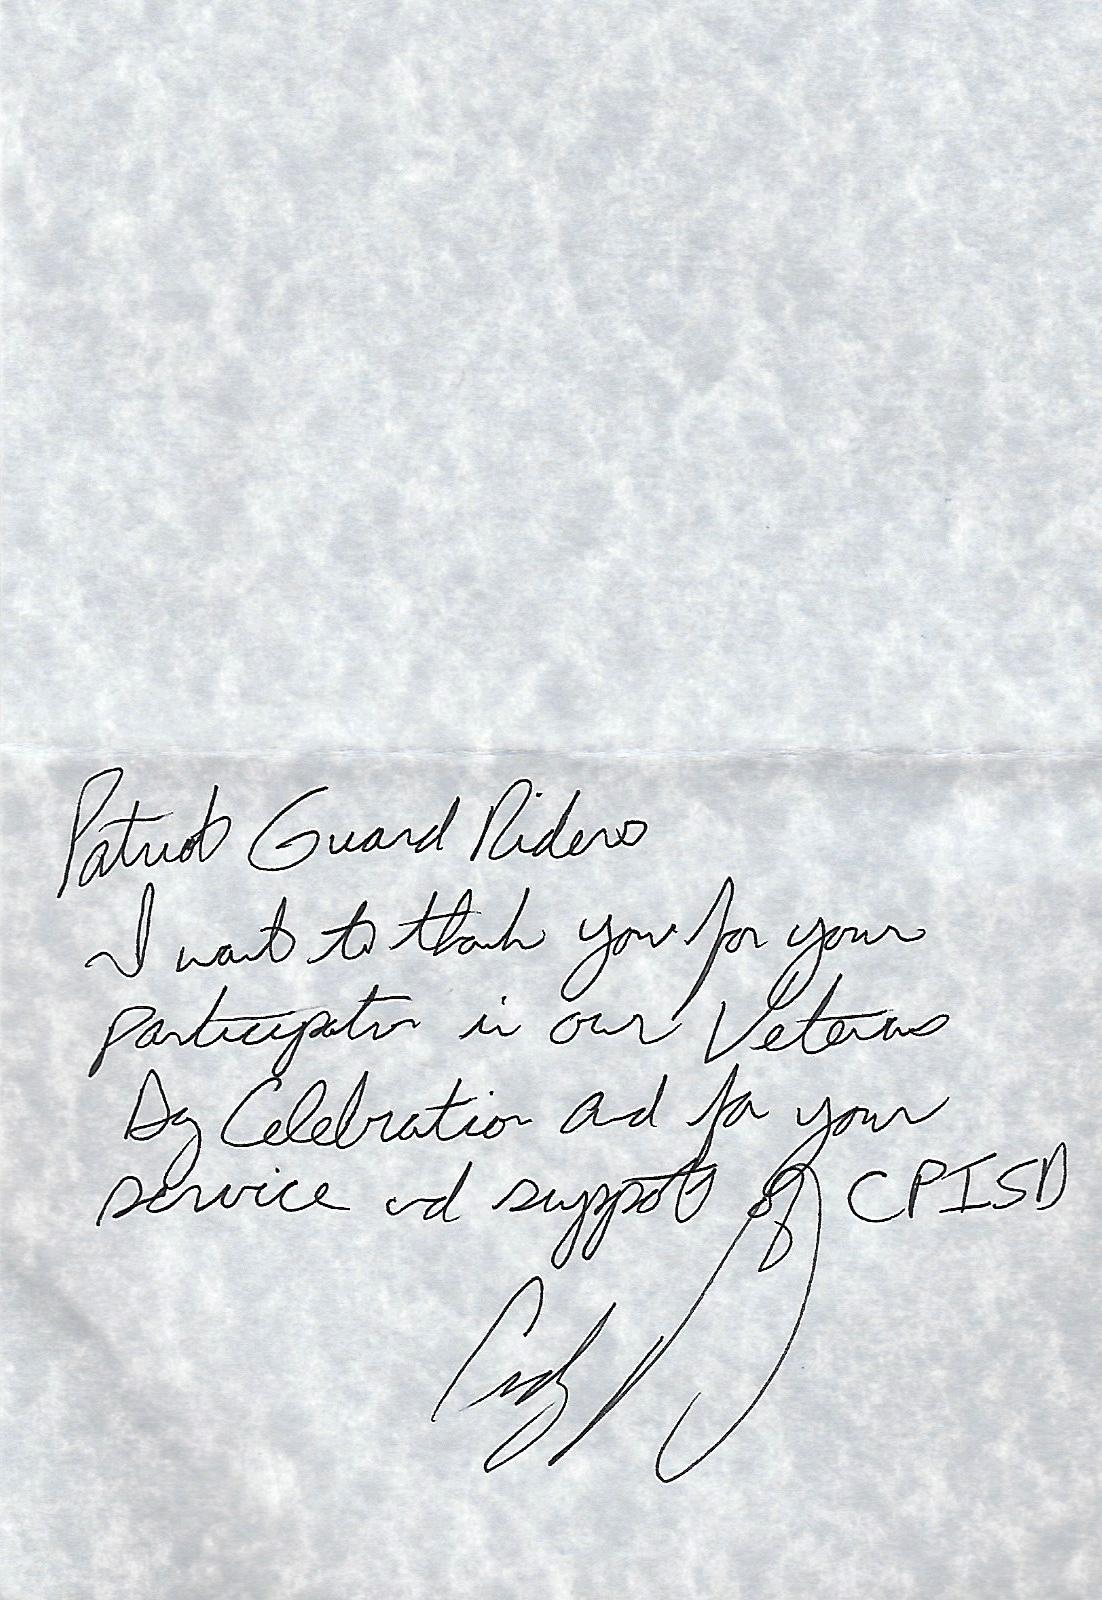 Patriot Guard Riders
I want to thank you for your
participation in our Veterans
Day Celebration and for your
service and support of CPISD